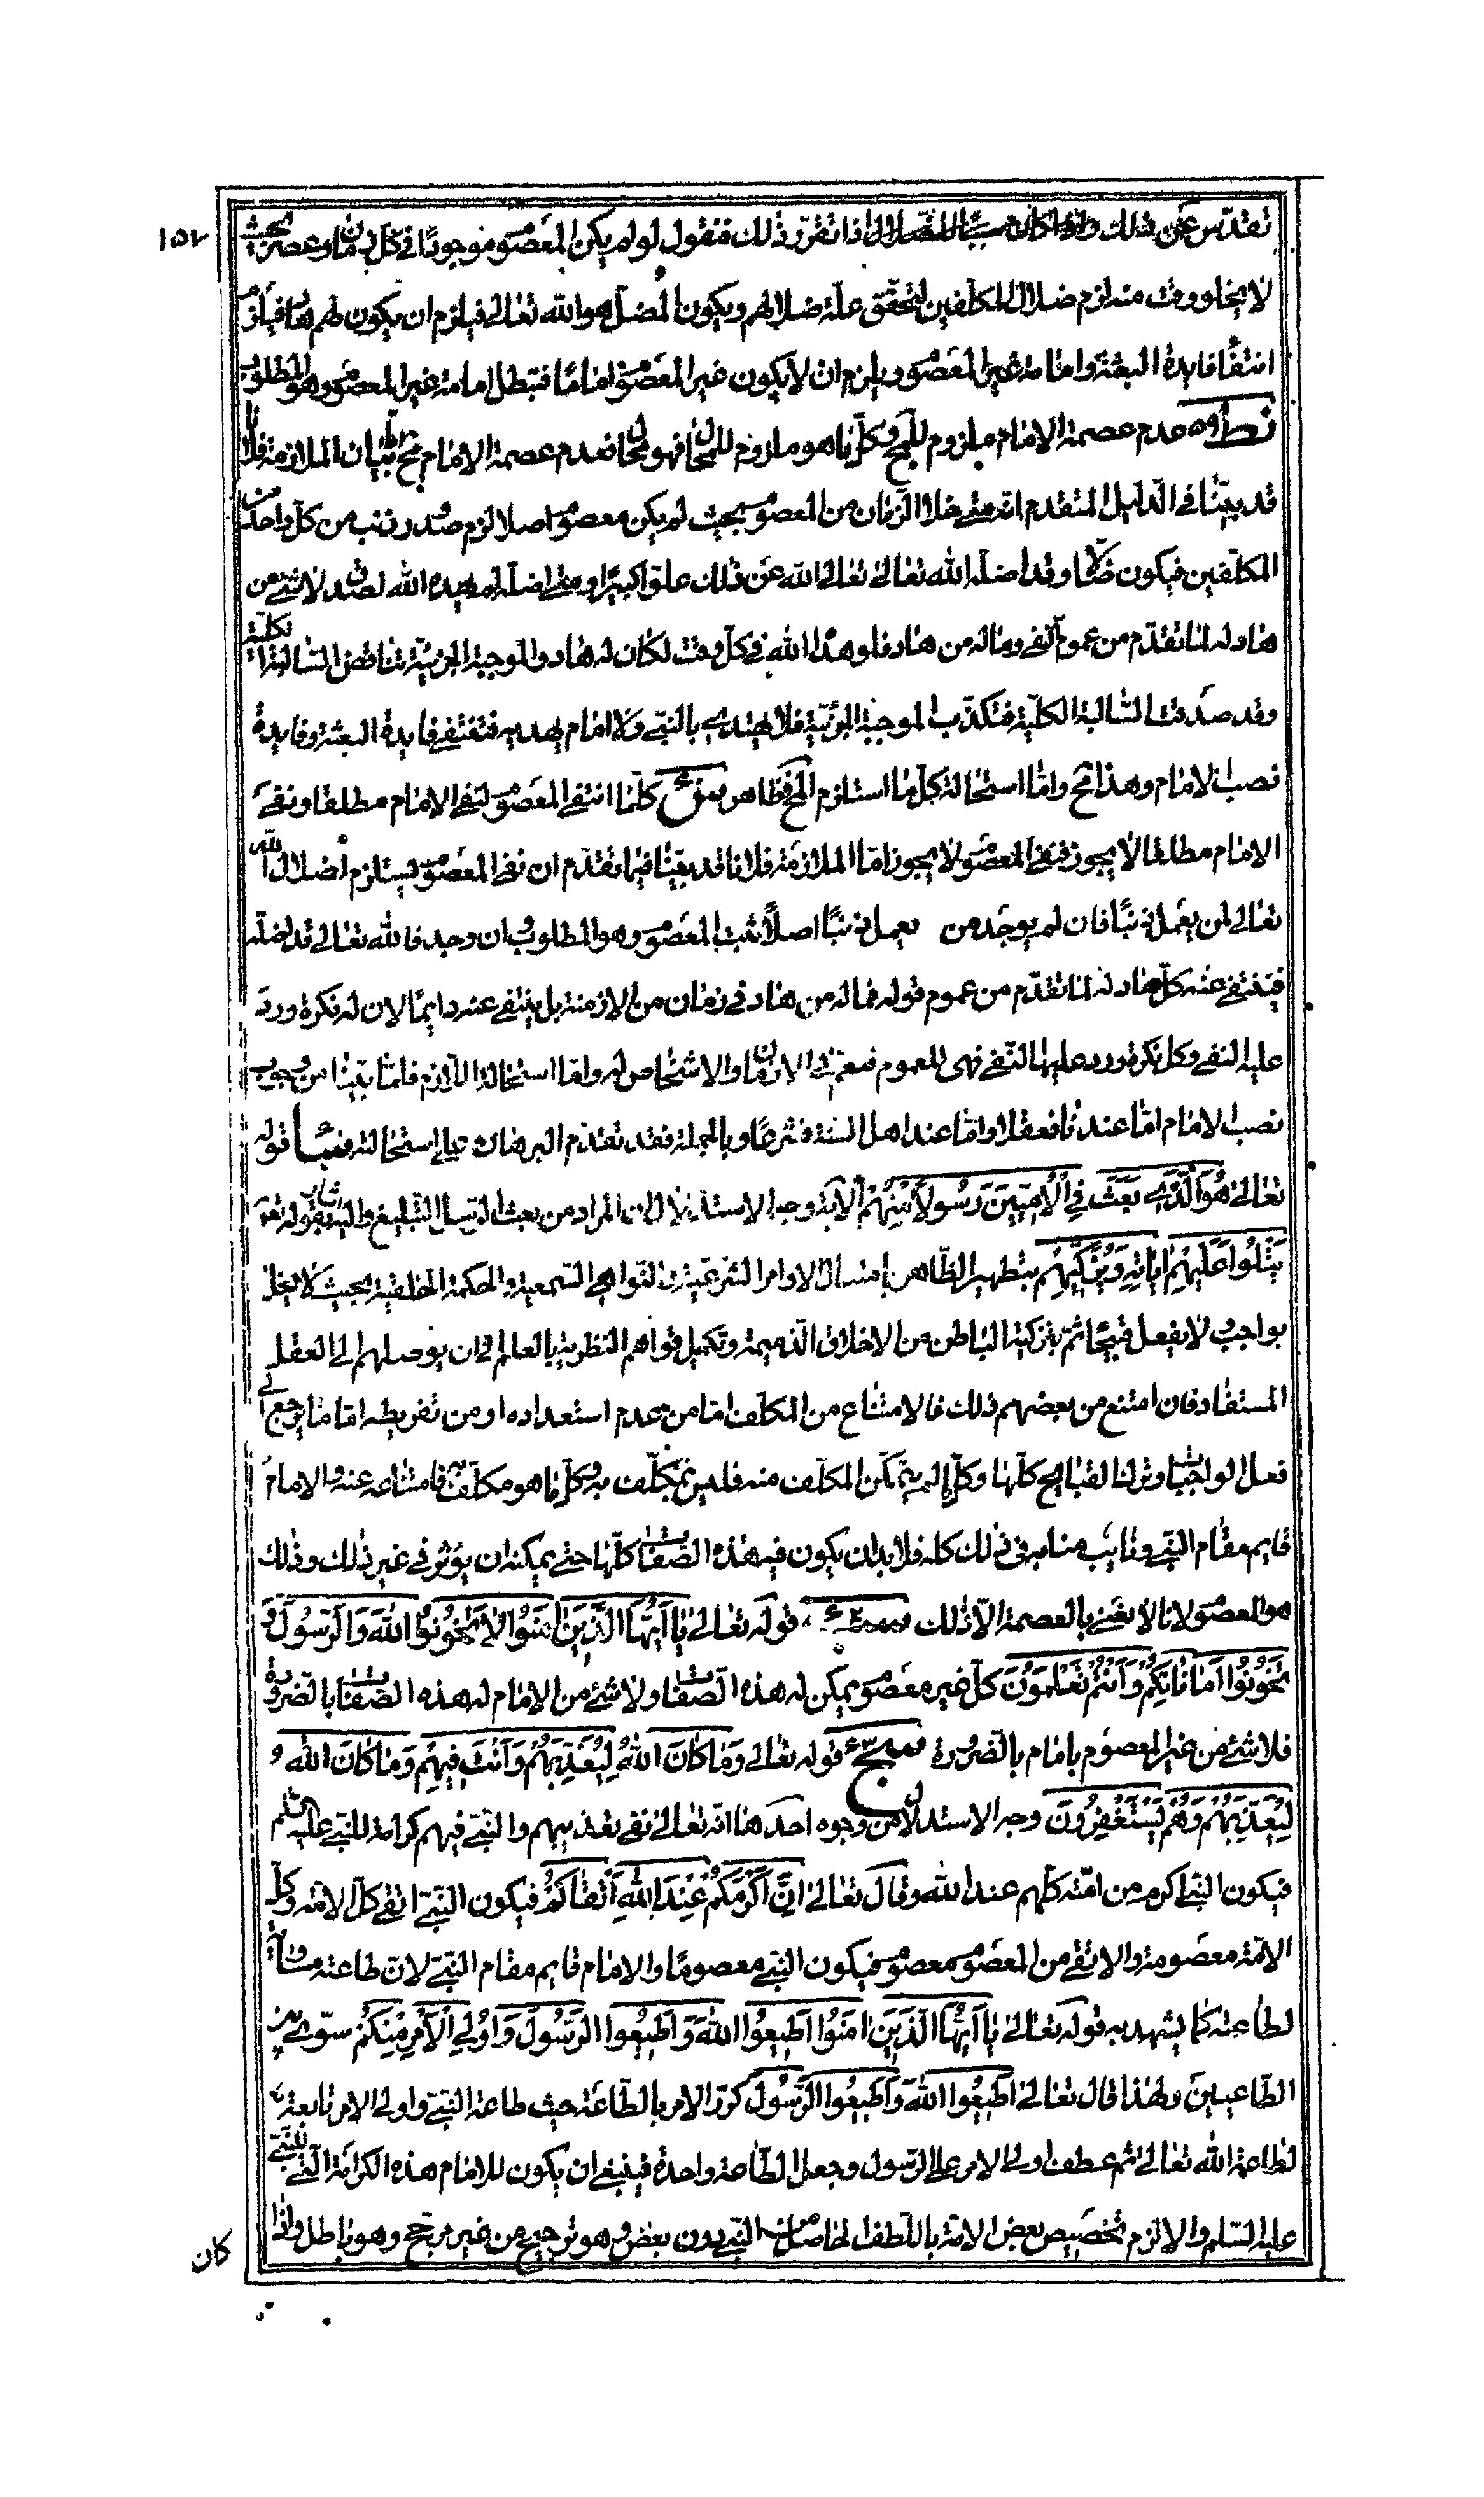 ١٥٢
تقدس عن ذلك اذا تقرر ذلك فنقول لو لم يكن المعصوم موجودا في كل زمان وعصر بحيث
لا يخلو وقت منه لزم ضلال المكلفين لتحقق علة ضلالهم ويكون المضل هو الله تعالى فيلزم ان يكون لهم هاد فيلزم
انتفاء فايدة البعثة وامامة غير المعصوم ويلزم ان لا يكون غير المعصوم اماما فتبطل امامة غير المعصوم وهو المطلوب
نط عدم عصمة الامام ملزوم للمح وكل ما هو ملزوم للمحال فهو محال فعدم عصمة الامام مح بيان الملازمة فلانا
قد بينا في الدليل المتقدم انه متى خلا الزمان من المعصوم بحيث لم يكن معصوم اصلا لزم صدور ذنب من كل واحد من
المكلفين فيكون ضالا وقد اضله الله تعالى تعالى الله عن ذلك علوا كبيرا ومتى اضله لم يهده الله لصدق لا شئ من
هاد له لما تقدم من عموم النفي وماله من هاد فلو هداه الله في كل وقت لكان له هاد والموجبة الجزئية تناقض السالبة الكلية
وقد صدقت السالبة الكلية فتكذب الموجبة الجزئية فلا يهتدى بالنبي ولا امام يهديه فتنتفى فايدة البعثة وفايدة
نصب الامام وهذا مح واما استحالة كل ما استلزم المح فظاهر س كلما انتفى المعصوم انتفى الامام مطلقا ونفى
الامام مطلقا لا يجوز فنفى المعصوم لا يجوز اما الملازمة فلانا قد بينا فيما تقدم ان نفى المعصوم يستلزم اضلال الله
تعالى لمن يعمل ذنبا فان لم يوجد من يعمل ذنبا اصلا ثبت المعصوم وهو المطلوب وان وجد فالله تعالى قد اضله
فينتفى عنه كل هاد له لما تقدم من عموم قوله فماله من هاد في زمان من الازمنة بل ينتفى عنه دايما لان له نكرة ورد
عليه النفى وكل نكرة ورد عليها النفي فهى للعموم فتعم في الازمان والاشخاص له واما استحالة اللازم فلما بينا من وجوب
نصب الامام اما عندنا فعقلا واما عند اهل السنة فشرعا وبالجملة فقد تقدم البرهان على استحالته سا قوله
تعالى هُوَ الَّذِي بَعَثَ فِي الْأُمِّيِّينَ رَسُولًا مِنْهُمْ الاية وجه الاستدلال ان المراد من بعث الرسل التبليغ والبيان بقوله تع
يَتْلُوا عَلَيْهِمْ اٰيَاتِهِ وَيُزَكِّيهِمْ بتطهير الظاهر بامتثال الاوامر الشرعية والنواهى السمعية والحكمة الخلقية بحيث لا يخل
بواجب ولا يفعل قبيحا ثم بتزكية الباطن من الاخلاق الذميمة وتكميل قواهم النظرية بالعلم الى ان يوصلهم الى العقل
المستفاد فان امتنع من بعضهم ذلك فالامتناع من المكلف اما من عدم استعداده او من تفريطه اما ما يرجع الى
فعل الواجبات وترك القبايح كلها وكل ما لم يتمكن المكلف منه فليس بمكلف به وكل ما هو مكلف به فامتناعه عنه والامام
قايم مقام النبي ونايب منابه في ذلك كله فلا بد ان يكون فيه هذه الصفات كلها حتى يمكنه ان يؤثر في غير ذلك وذلك
هو المعصوم لانا لا نعنى بالعصمة الا ذلك سب قوله تعالى يَا أَيُّهَا الَّذِينَ اٰمَنُوا لَا تَخُونُوا اللّٰهَ وَالرَّسُولَ وَ
تَخُونُوا أَمَانَاتِكُمْ وَأَنْتُمْ تَعْلَمُونَ كل غير معصوم يمكن له هذه الصفات ولا شئ من الامام له هذه الصفات بالضرورة
فلا شئ من غير المعصوم بامام بالضرورة سج قوله تعالى وَمَا كَانَ اللّٰهُ لِيُعَذِّبَهُمْ وَأَنْتَ فِيهِمْ وَمَا كَانَ اللّٰهُ
لِيُعَذِّبَهُمْ وَهُمْ يَسْتَغْفِرُونَ وجه الاستدلال من وجوه احدها انه تعالى نفى تعذيبهم والنبي فيهم كرامة للنبي عليه السلم
فيكون النبي اكرم من امته كلهم عند الله وقال تعالى اِنَّ أَكْرَمَكُمْ عِنْدَ اللّٰهِ أَتْقَاكُمْ فيكون النبي اتقى كل الامة وكل
الامة معصومة والاتقى من المعصوم معصوم فيكون النبي معصوما والامام قايم مقام النبي لان طاعته مساوية
لطاعته كما يشهد به قوله تعالى يَا أَيُّهَا الَّذِينَ اٰمَنُوا أَطِيعُوا اللّٰهَ وَأَطِيعُوا الرَّسُولَ وَأُولِي الْأَمْرِ مِنْكُمْ سوى بين
الطاعتين ولهذا قال تعالى أَطِيعُوا اللّٰهَ وَأَطِيعُوا الرَّسُولَ كرر الامر بالطاعة حيث طاعة النبي واولى الامر تابعة
لطاعة الله تعالى ثم عطف اولى الامر على الرسول وجعل الطاعة واحدة فينبغى ان يكون للامام هذه الكرامة التي للنبي
عليه السلم والا لزم تخصيص بعض الامة باللطف الخاص من النبي دون بعض وهو ترجيح من غير مرجح وهو باطل واذا
كان